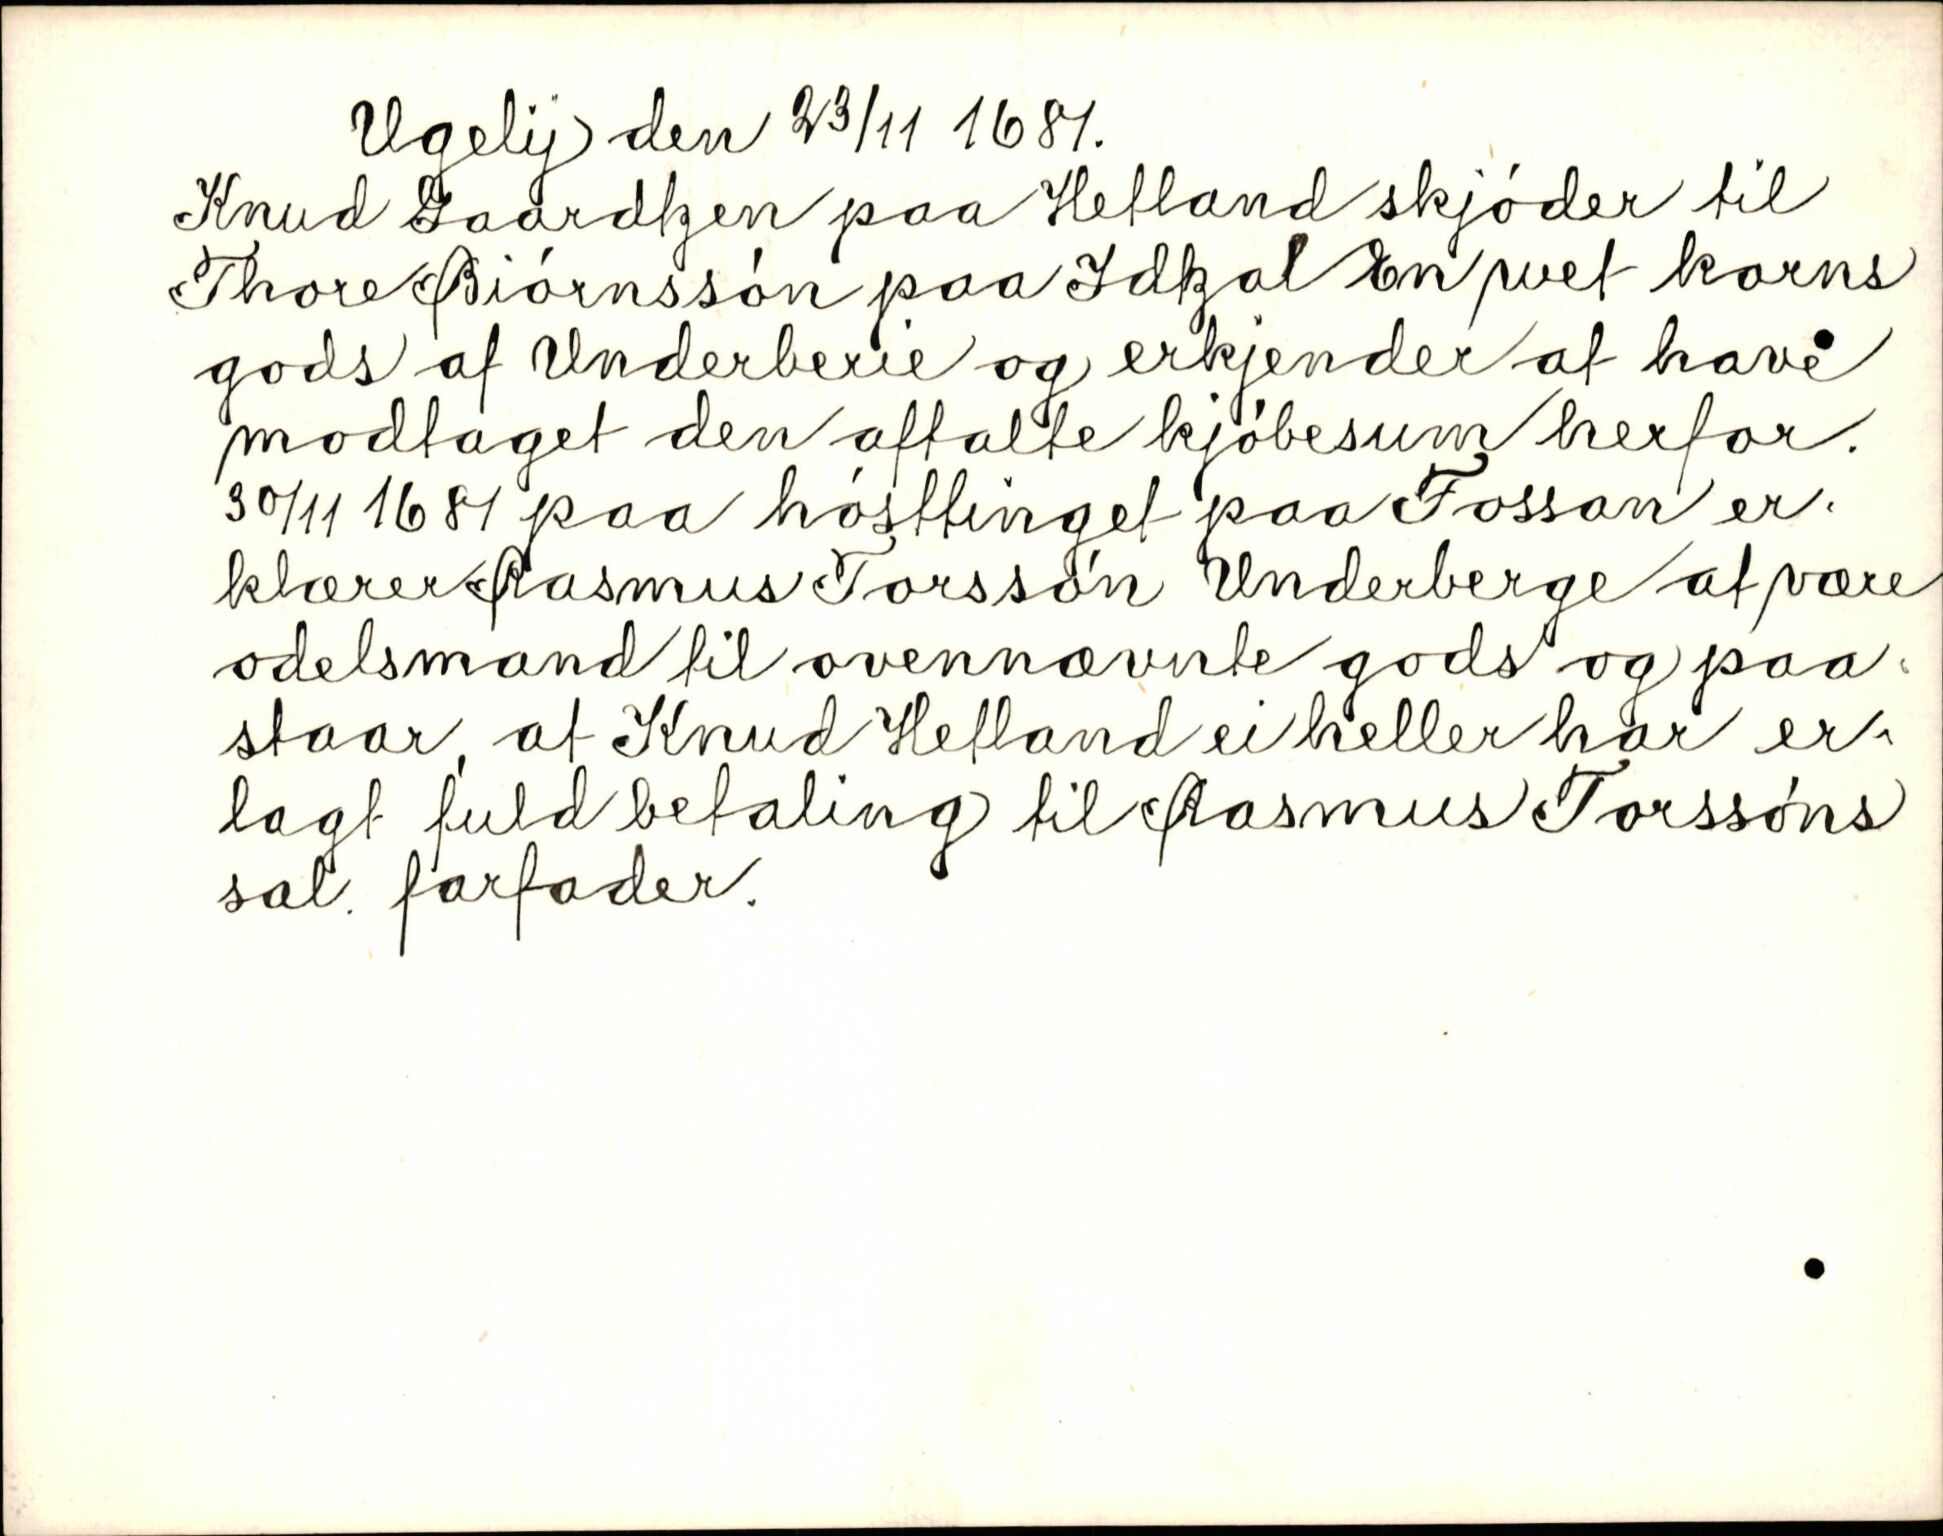 Ugelÿ den 23/11 1681.
Knud Gaardtzen paa Hetland skjóder til
Thore Biórnssón paa Idtzal En vet korns
gods af Underberie og erkjender at have
modtaget den aftalte kjóbesum herfor.
30/11 1681 paa hósttinget paa Fossan er-
klærer Rasmus Torssón Underberge at være
odelsmand til ovennævnte gods og paa-
staar, at Knud Hetland ei heller har er-
lagt fuld betaling til Rasmus Torssóns
sal. farfader.